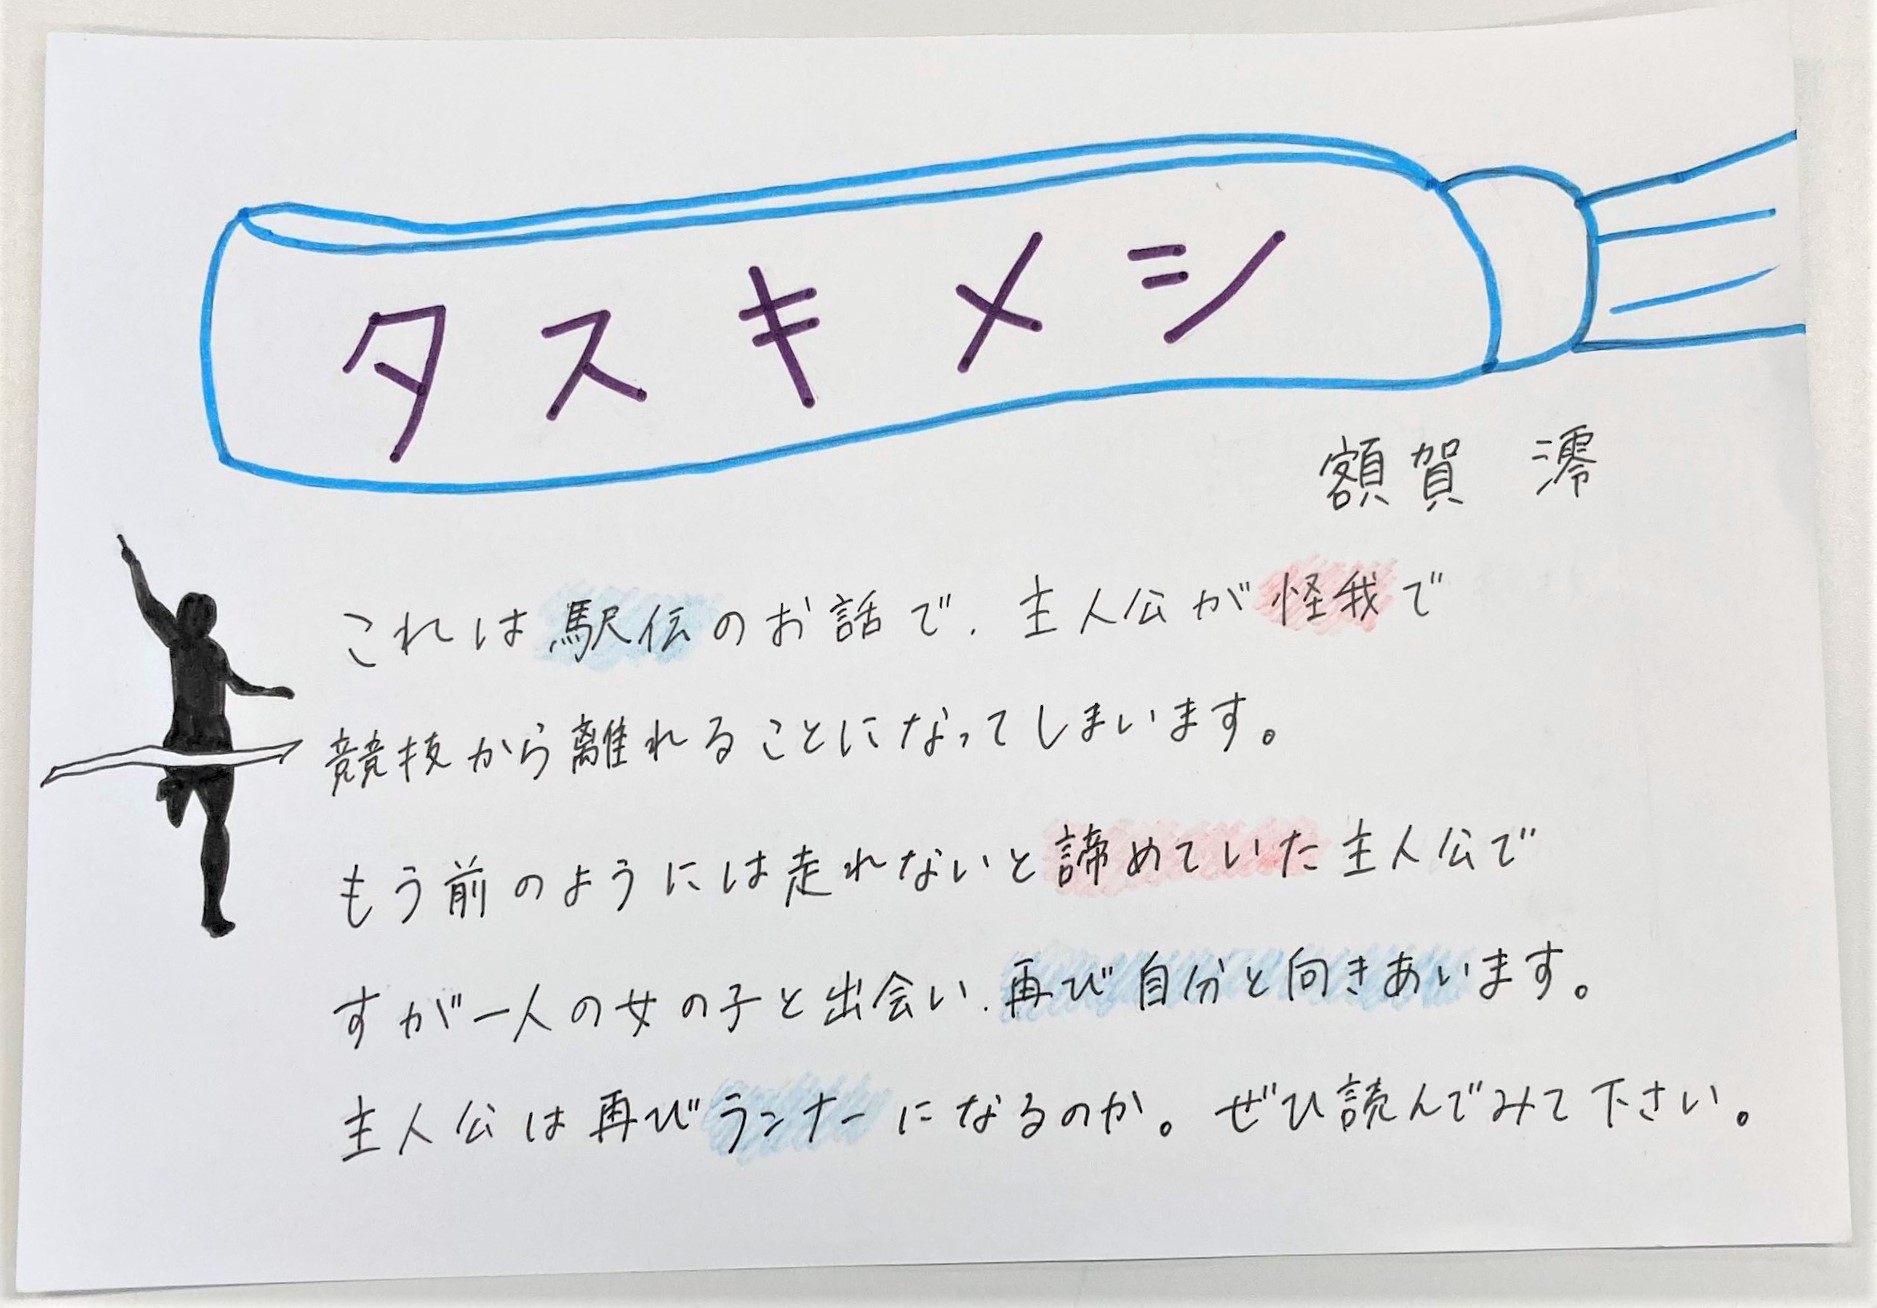 タスキメシ
額賀 澪
これは駅伝のお話で、主人公が怪我で
競技から離れることになってしまいます。
もう前のようには走れないと諦めていた主人公で
すが一人の女の子と出会い、再び自分と向きあいます。
主人公は再びランナーになるのか。ぜひ読んでみて下さい。